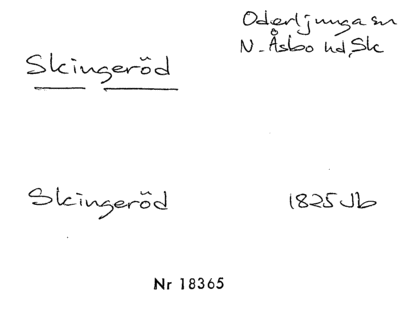 Oderljunga sn
N. Åsbo hd, Sk
Skingeröd
Skingeröd 1825 Jb
Nr 18365